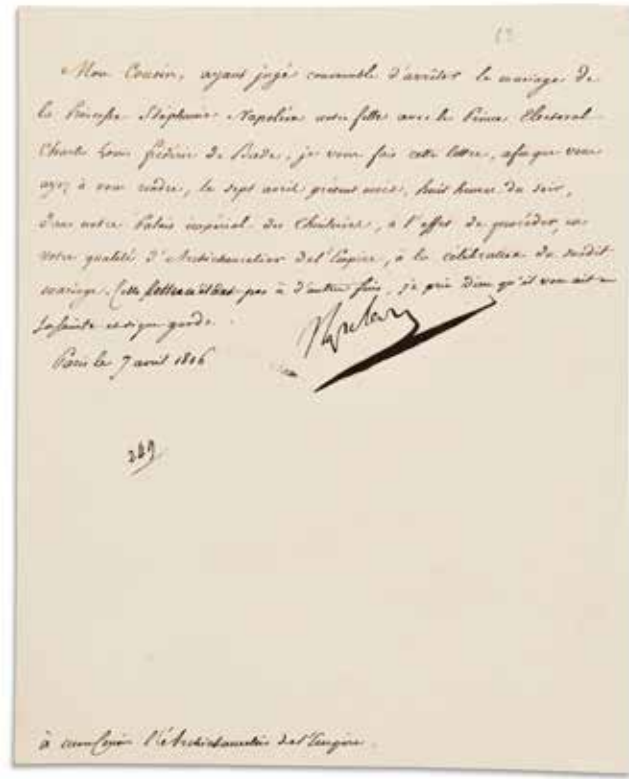 63
Mon Cousin, ayant jugé convenable d'arrêter le mariage de
la Princesse Stéphanie Napoléon notre fille avec le Prince Electoral
Charles Louis Frédéric de Bade, je vous fais cette lettre, afin que vous
ayez à vous rendre, le sept avril présent mois, huit heures du soir,
dans notre Palais impérial des Thuileries, à l'effet de procéder, en
votre qualité d'Archichancelier de l'Empire, à la célébration du susdit
mariage. Cette lettre n'étant pas à d'autre fins, je prie Dieu qu'il vous ait en
sa sainte et digne garde.
Paris le 7 avril 1806
249
à mon Cousin l'Archichancelier de l'Empire.